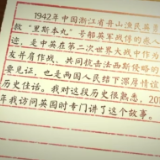 1942年中国浙江省舟山渔民英勇
救“里斯本丸”号船英军战俘的感人
迹，是中英在第二次世界大战中作为
友并肩作战、共同抗击法西斯侵略的
要见证，也是两国人民结下深厚情谊
历史佳话。我对这段历史很熟悉，20
年我访问英国时专门讲了这个故事。